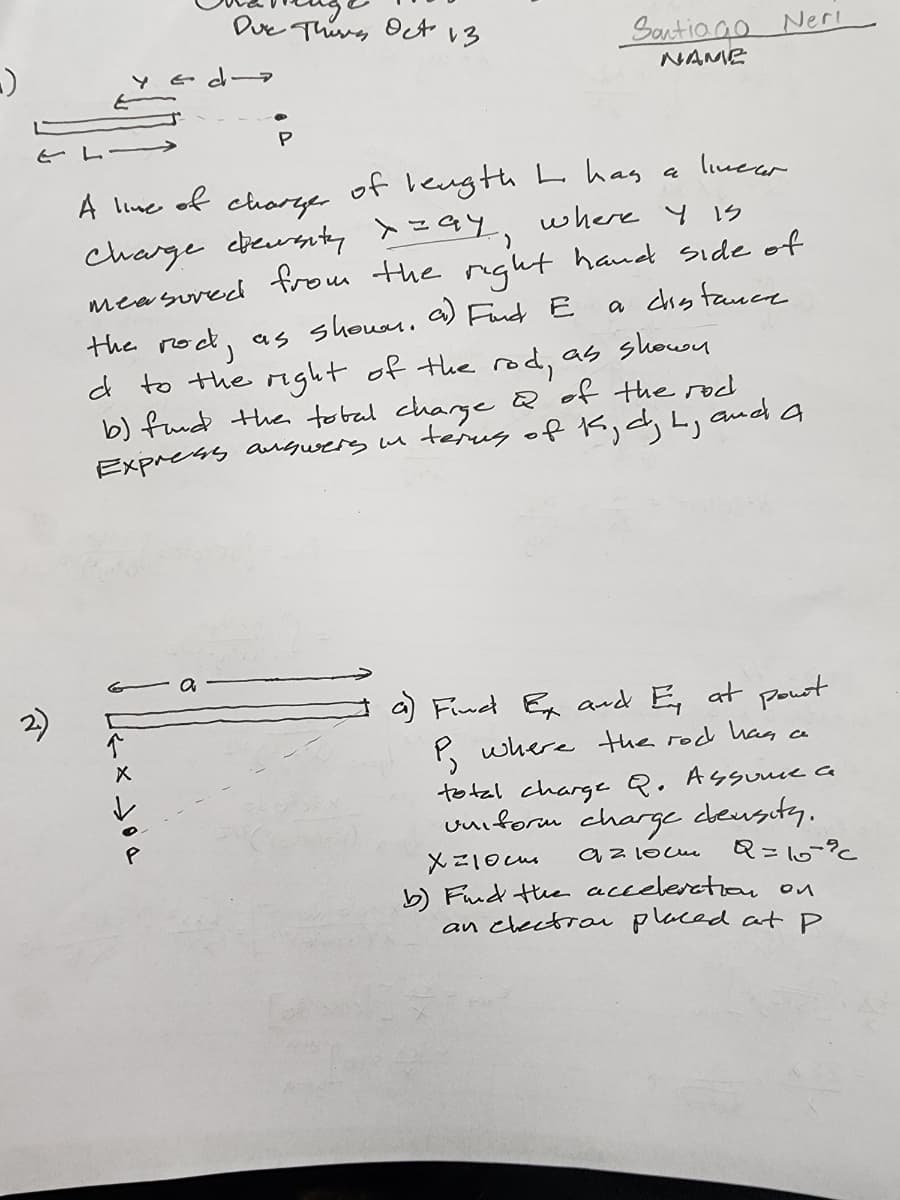 Due Thurs Oct 13
Santiago Neri
NAME
1)
y ← d →
← L →
P
A line of charge of length L has a linear
charge density λ = ay, where y is
measured from the right hand side of
the rod, as shown. a) Find E a distance
d to the right of the rod, as shown
b) find the total charge Q of the rod
Express answers in terms of K, d, L, and a
2)
← a →
↑
x
↓
P
a) Find Ex and Ey at point
P, where the rod has a
total charge Q. Assume a
uniform charge density.
X=10cm a=10cm Q=10⁻⁹C
b) Find the acceleration on
an electron placed at P